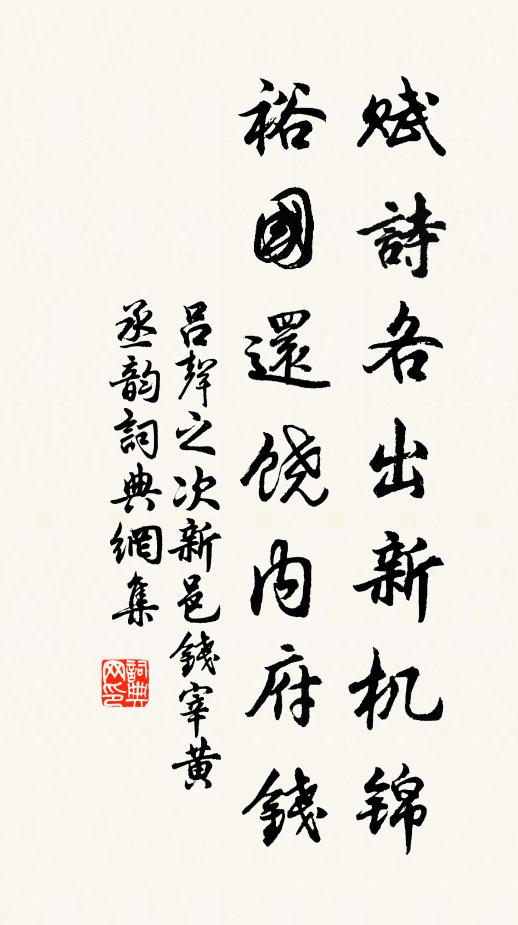 赋詩各出新机锦
裕國還饶内府錢
吕聲之次新邑錢宰黄
丞韵詞典網集
詞典网印